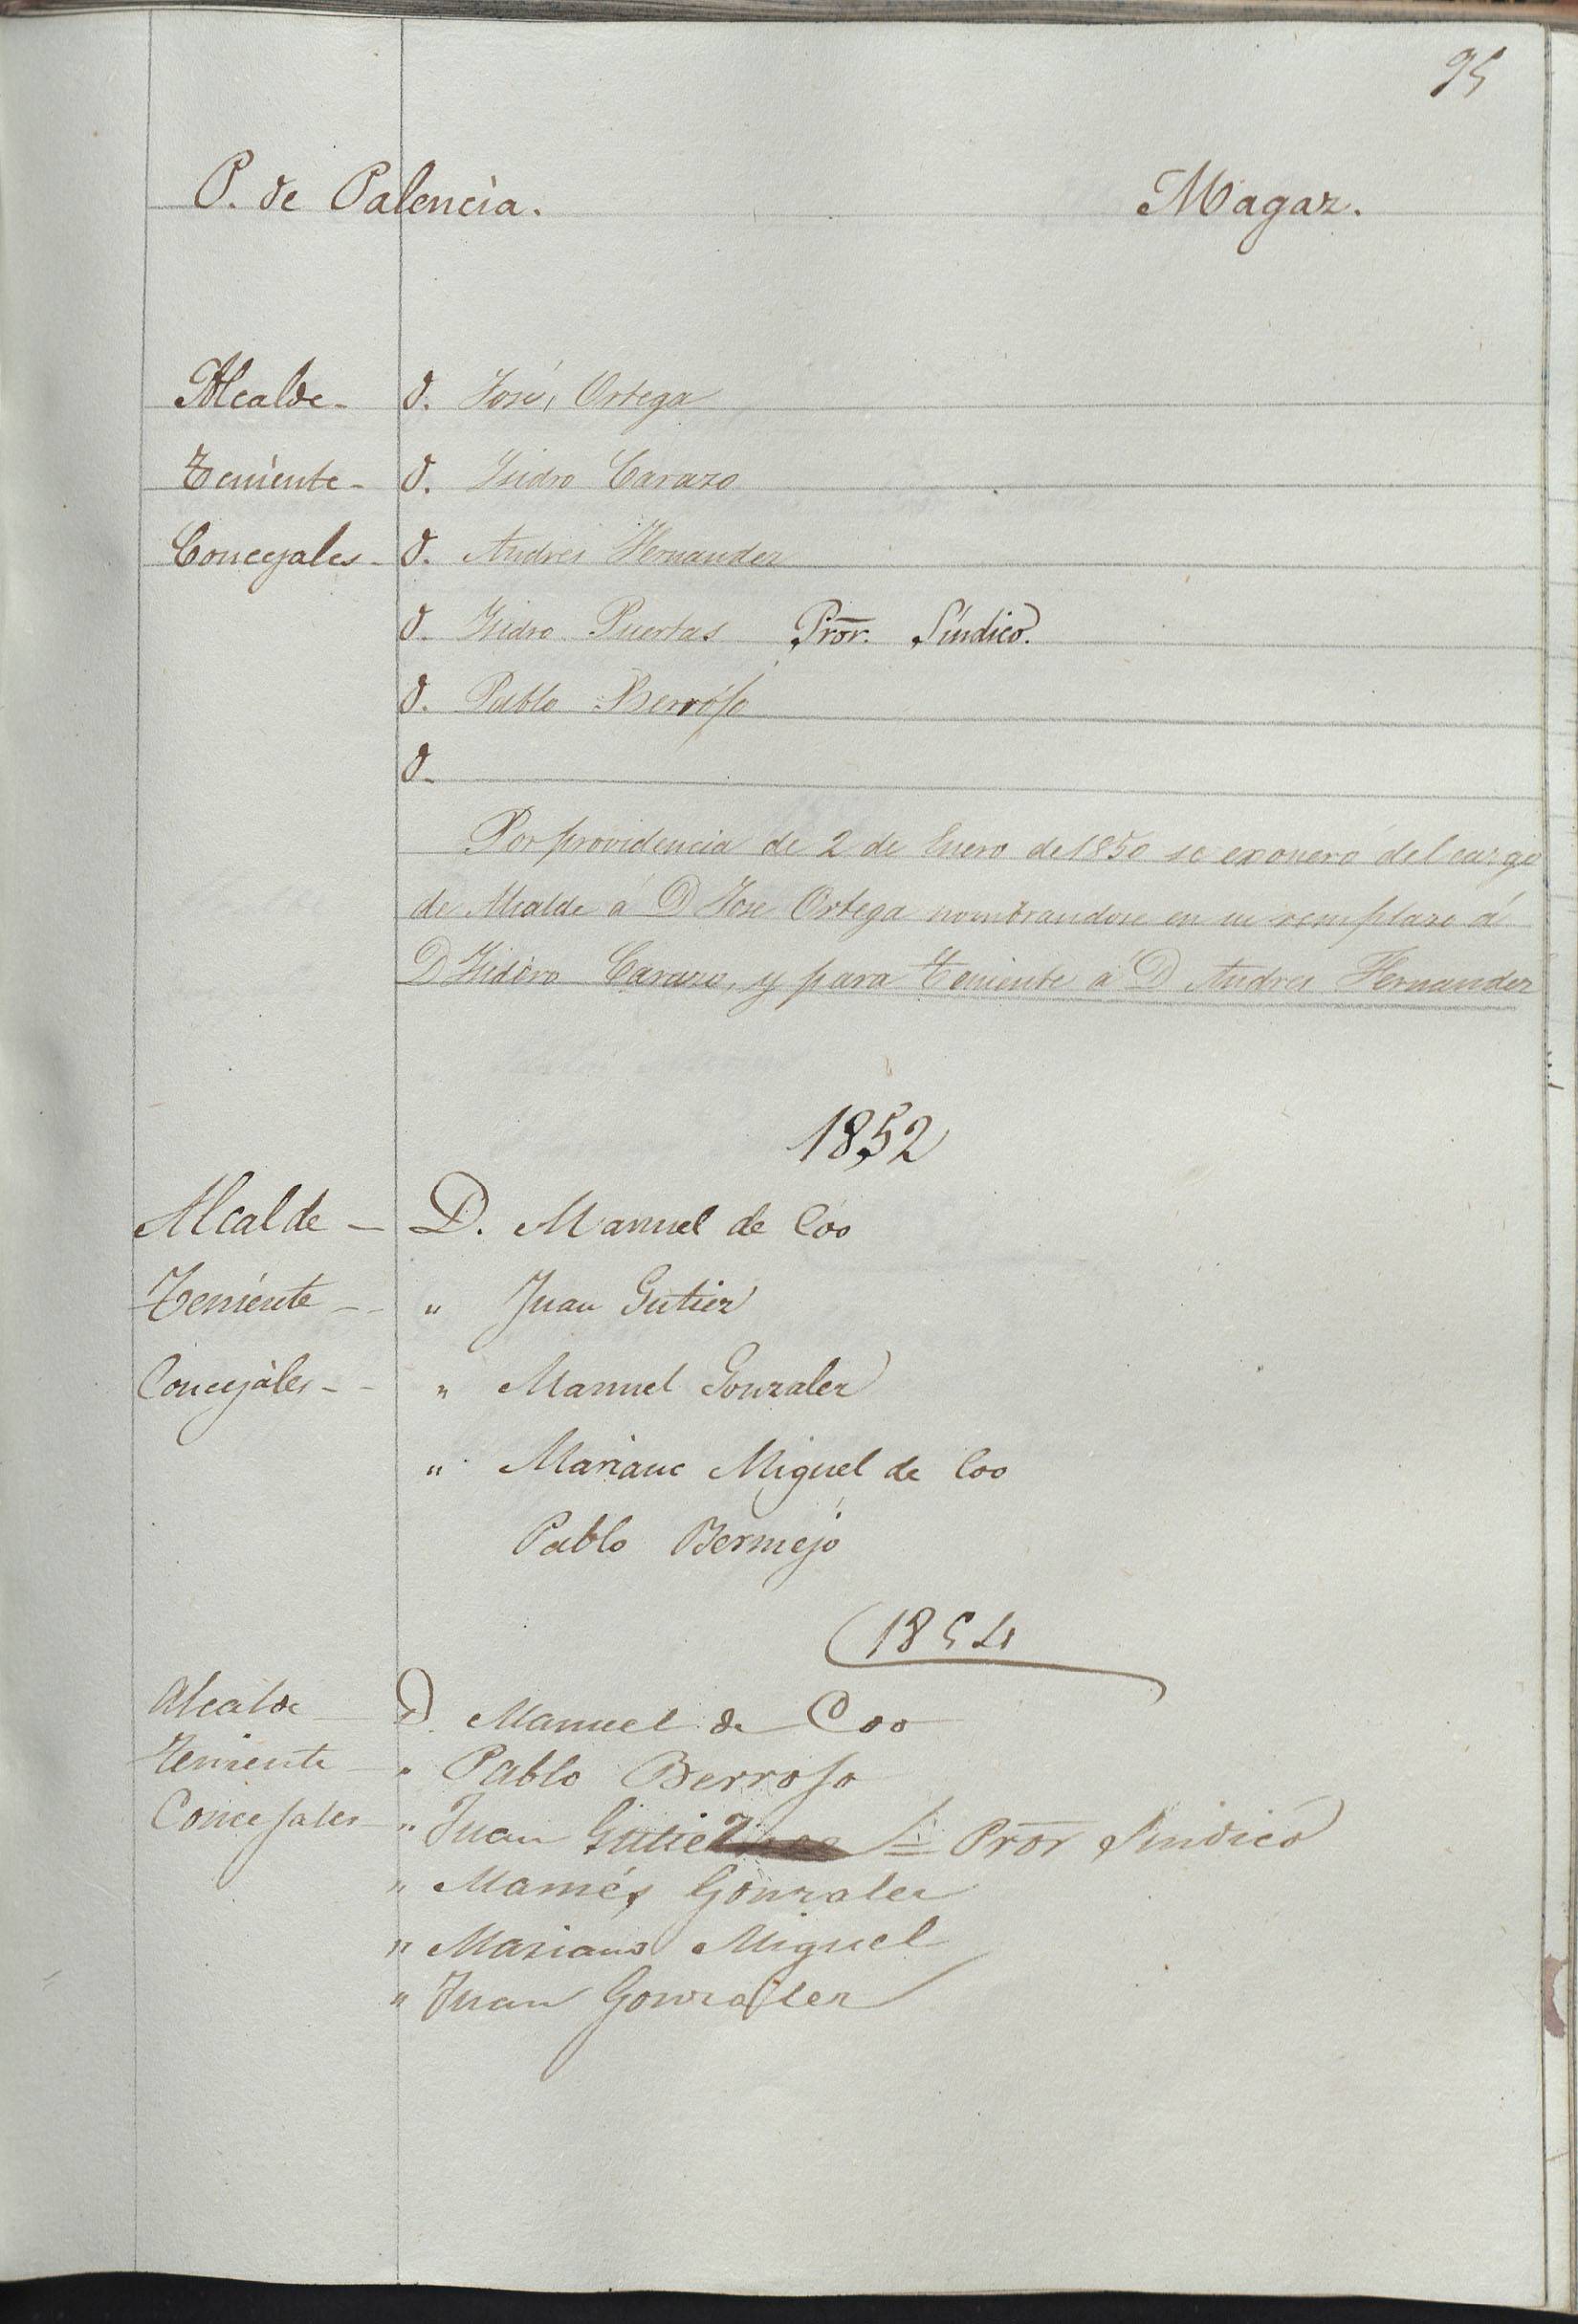 95
P. de Palencia. Magaz.
Alcalde - D. José, Ortega
Teniente - D. Isidro Carazo
Concejales - D. Andres Hernandez
D. Isidro Puertas Pror. Síndico.
D. Pablo Berroso
D.
Por providencia de 2 de Enero de 1850 se exonera del cargo
de Alcalde á D Jose Ortega nombrandose en su remplazo á
D Isidoro Carazo, y para Teniente á D Andres Hernandez
1852
Alcalde - D. Manuel de Coo
Teniente - - " Juan Gutiez
Concejales - - " Manuel Gonzalez
" Mariano Miguel de Coo
Pablo Bermejo
1854
Alcalde D. Manuel de Coo
Teniente " Pablo Berroso
Concejales " Juan Gutiez Pror Sindico
" Mamés Gonzalez
" Mariano Miguel
" Juan Gonzalez